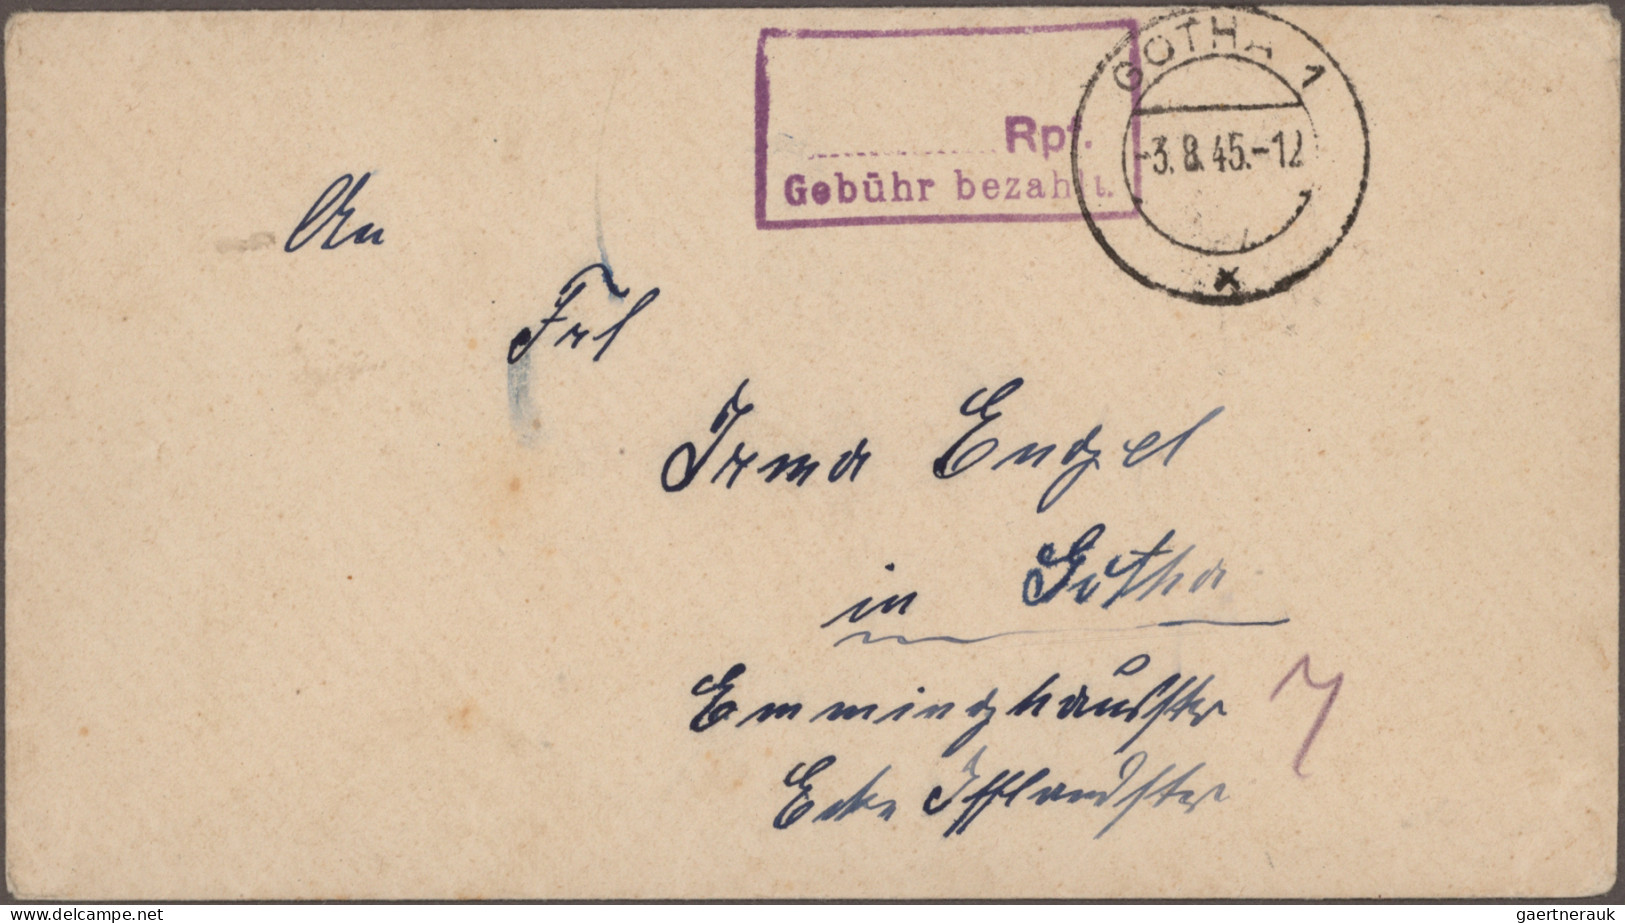 GOTHA 1
Rpf.
-3.8.45.-12
Gebühr bezahlt.
An
Frl
Irma Engel
in Gotha
Emminghausstr 7
Ecke Ifflandstr
www.delcampe.net
gaertnerauk